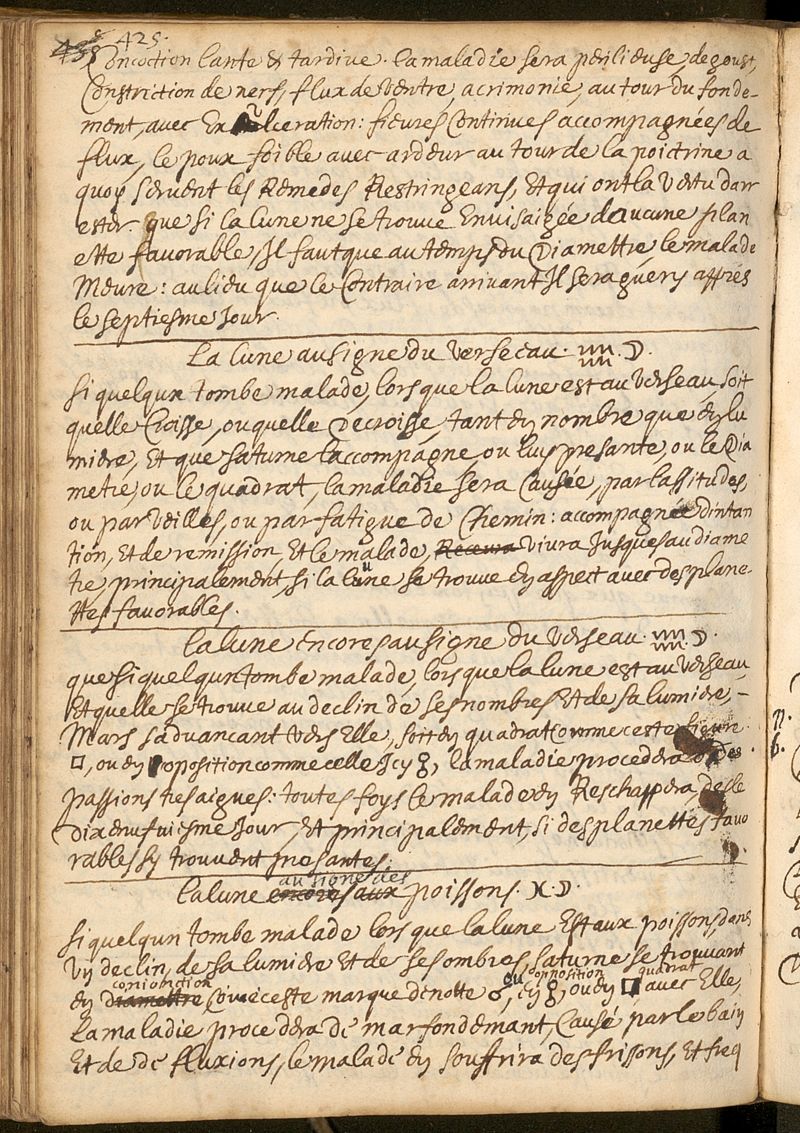 435 425.
Concoction lante & tardive. la maladie sera perilieuse, degoust,
Constriction de nerfs, flux de ventre, acrimonie, autour du fonde-
ment, avec Exulceration: fievres Continues accompagnées de
flux, le poux foible avec ardeur autour de la poictrine a
quoy servent les Remedes Restringeans, Et qui ont la vertu darr
ester. que si la lune ne se trouve Envisaigée daucune plan
ette favorable, Il faut que au temps du Diamettre le malade
Meure: au lieu que le Contraire arrivant Il sera guery apprés
le septiesme Jour.
La lune au signe du Verseau. ♒. ☽.
si quelqun tombe malade, lors que la lune est au Verseau, soit
quelle Croisse, ou quelle Decroisse, tant en nombre que en lu
miere, Et que saturne laccompagne, ou luy presante, ou le Dia
metre, ou le quadrat, la maladie sera Causée, par lassitudes,
ou par veilles, ou par fatigue de Chemin: accompagnée dintan
tion, Et de remission, Et le malade, Recevra vivra Jusques au diame
tre, principalement, si la lune se trouve en aspect avec des plane-
ttes favorables.
La lune encores au signe du Verseau. ♒. ☽.
que si quelqun tombe malade, lors que la lune est au Verseau,
Et quelle se trouve au declin de ses nombres Et de sa lumiere, -
Mars sadvancant vers Elle, soit en quadrat Comme ceste figure
□, ou en opposition comme celle Icy ☍, la maladie procedera des
passions tresaigues: toutes foys le malade en Reschappera, des le
dixeneufuiesme Jour, Et principalement, si des planettes favo
rables sy trouvent presantes.
au signe des
La lune encores aux poissons. ♓. ☽.
si quelqun tombe malade lors que la lune Est aux poissons dans
un declin, de sa lumiere Et de ses ombres, saturne se trouvant
conionction ou opposition quadrat
en diamettre Comme ceste marque denotte ☌, en ☍, ou en □ avec Elle,
La maladie procedera de marfondemant, Causé par le bain
Et de de fluxions, le malade en souffrira des frissons, Et freq